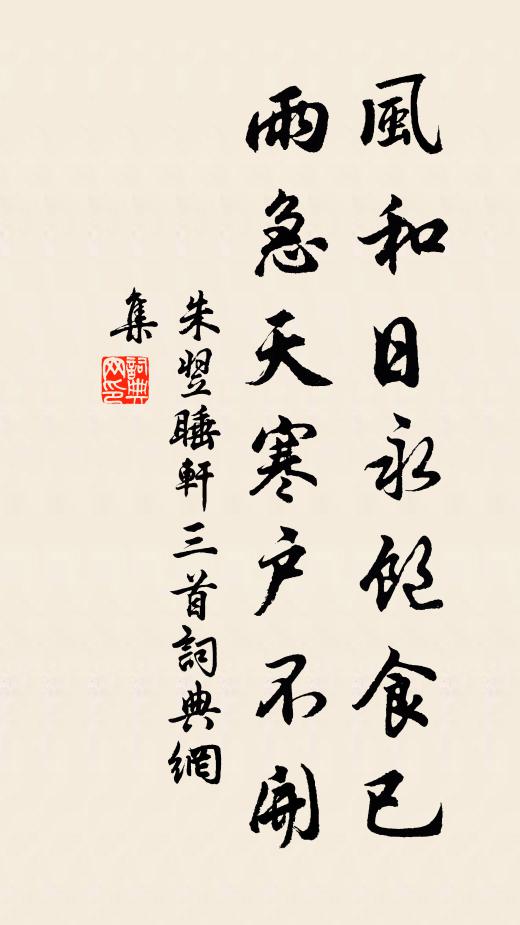 風和日永飽食已
雨急天寒户不開
朱翌睡軒三首詞典網
集
詞典
网印